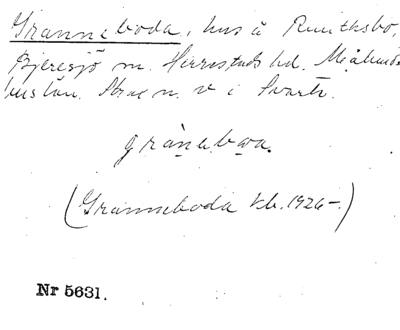 Granneboda, hus å Ruuthsbo,
Bjeresjö sn. Herrestads hd. Malmöhus län. Strax n. v i Svarte.
gránabωa.
(Granneboda kb. 1926-)
Nr 5631.